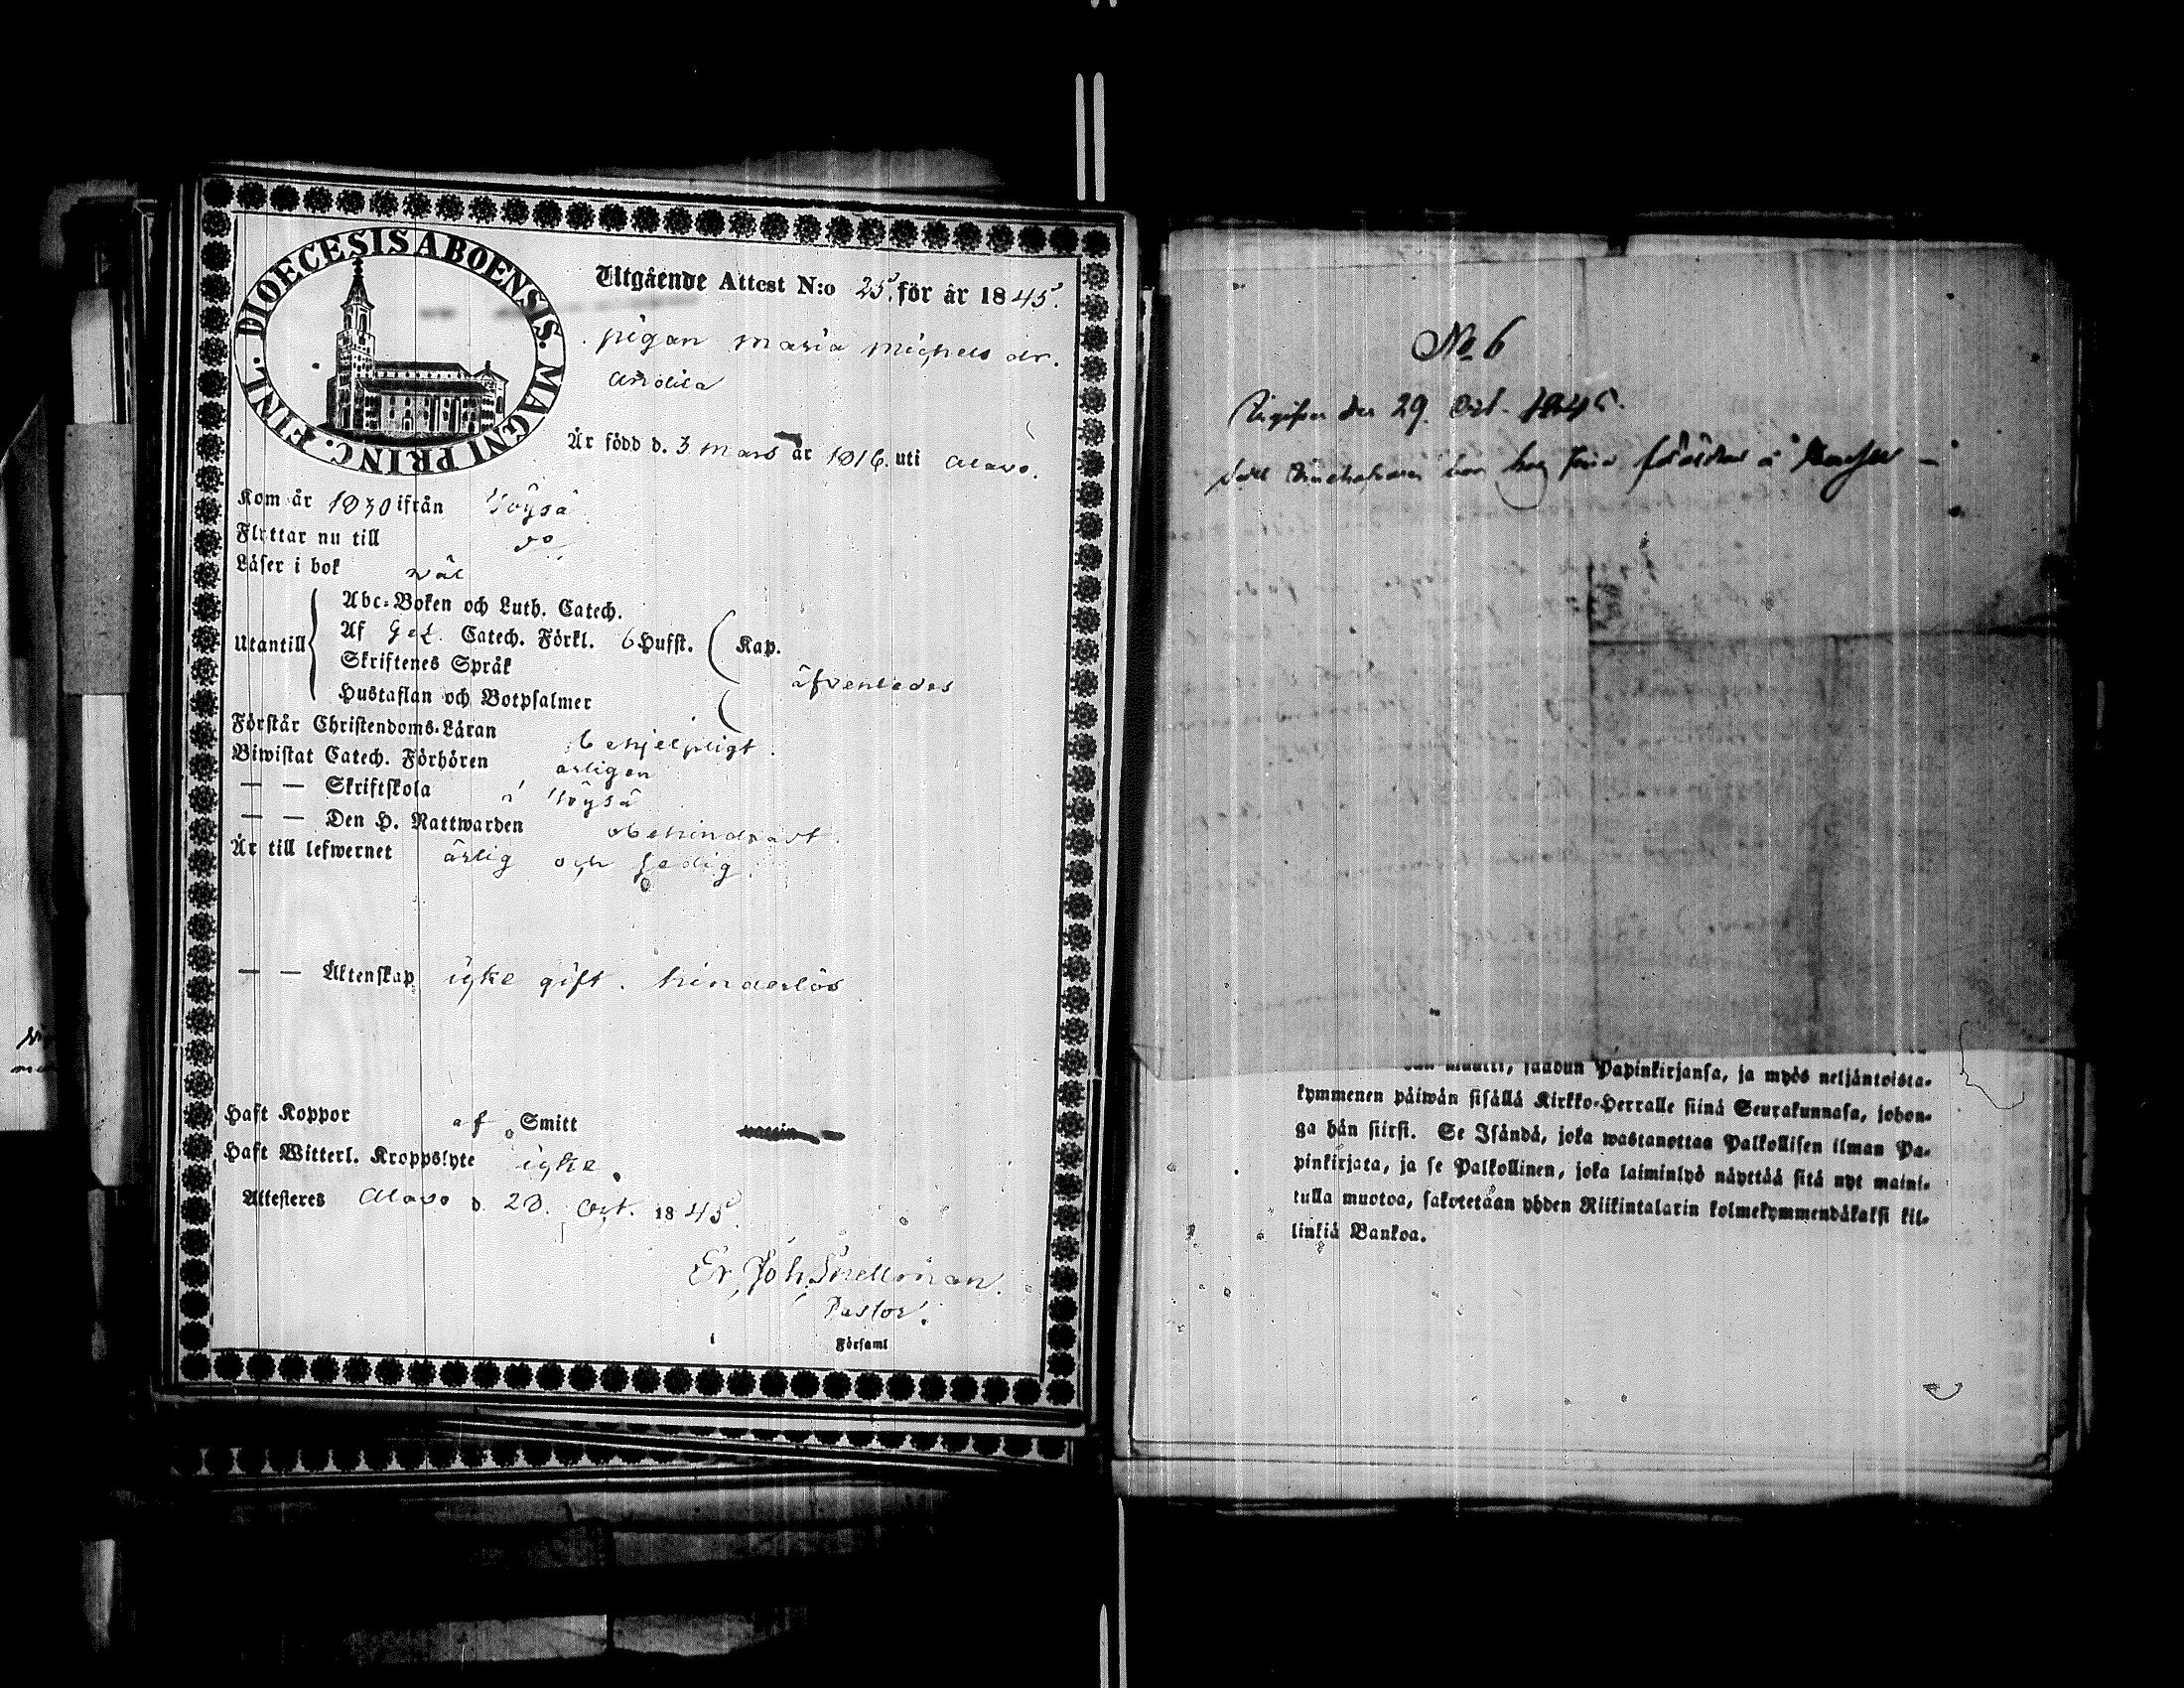 DIOECESIS ABOENSIS. MAGNI PRINC. FINL.
Utgående Attest N:o 25. för år 1845.
pigan Maria Michels dr.
Är född d. 3 Mars år 1816. uti Alavo.
Kom år 1830 ifrån Töysä
Flyttar nu till do
Läser i bok väl
Utantill
Abc-Boken och Luth. Catech.
Af Gez. Catech. Förkl. 6 Hufst. Kap.
Skriftenes Språk
äfvenledes
Hustaflan och Botpsalmer
Förstår Christendoms-Läran behjelpligt.
Biwistat Catech. Förhören årligen
— — Skriftskola i Töysä
— — Den H. Nattwarden obehindradt.
Är till lefwernet ärlig och sedig.
— — Äktenskap icke gift. hinderlös
Haft Koppor af Smitt
Haft Witterl. Kroppslyte icke.
Attesteres Alavo d. 28. Oct. 1845.
Er. Joh. Snellman.
Pastor.
Församl
No 6
den 29. Oct. 1845.
hos sina föräldrar å
muutti, saadun Papinkirjansa, ja myös neljäntoista-
kymmenen päiwän sisällä Kirkko-Herralle siinä Seurakunnasa, johon-
ga hän siirsi. Se Isändä, joka wastanottaa Palkollisen ilman Pa-
pinkirjata, ja se Palkollinen, joka laiminlyö näyttää sitä nyt maini-
tulla muotoa, sakotetaan yhden Riikintalarin kolmekymmendäkaksi kil-
linkiä Bankoa.